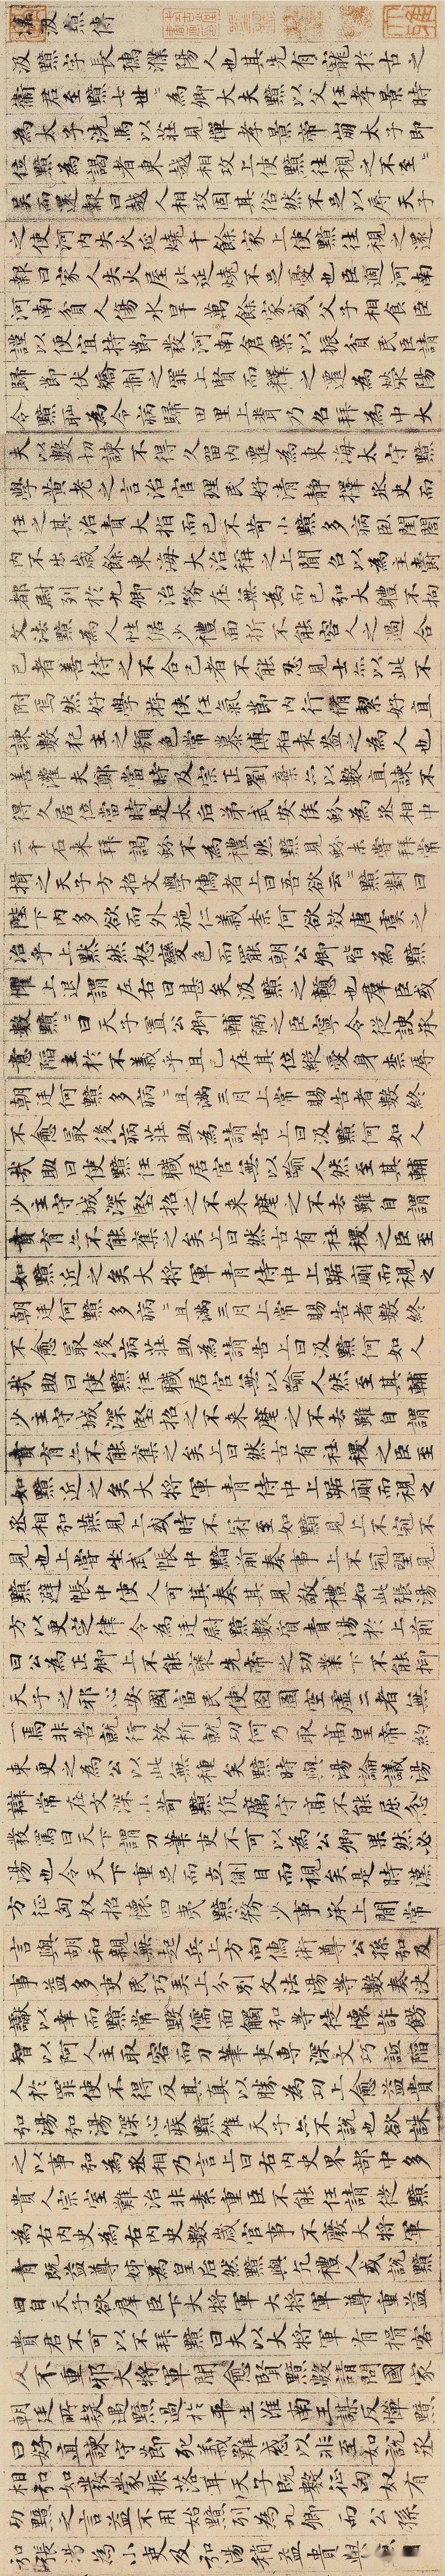 汲黯傳
汲黯字長孺濮陽人也其先有寵於古之
衛君至黯七世世為卿大夫黯以父任孝景時
為太子洗馬以莊見憚孝景帝崩太子即
位黯為謁者東越相攻上使黯往視之不至至
吳而還報曰越人相攻固其俗然不足以辱天子
之使河內失火延燒千餘家上使黯往視之還
報曰家人失火屋比延燒不足憂也臣過河南
河南貧人傷水旱萬餘家或父子相食臣
謹以便宜持節發河南倉粟以振貧民臣請
歸節伏矯制之罪上賢而釋之遷為滎陽
令黯恥為令病歸田里上聞乃召拜為中大
夫以數切諫不得久留內遷為東海太守黯
學黃老之言治官理民好清靜擇丞史而
任之其治責大指而已不苛小黯多病臥閨閤
內不出歲餘東海大治稱之上聞召以為主爵
都尉列於九卿治務在無為而已弘大體不拘
文法黯為人性倨少禮面折不能容人之過合
己者善待之不合己者不能忍見士亦以此不
附焉然好學游俠任氣節內行脩絜好直
諫數犯主之顏色常慕傅柏袁盎之為人也
善灌夫鄭當時及宗正劉棄亦以數直諫不
得久居位當時是太后弟武安侯蚡為丞相中
二千石來拜謁蚡不為禮然黯見蚡未嘗拜常
揖之天子方招文學儒者上曰吾欲云云黯對曰
陛下內多欲而外施仁義柰何欲效唐虞之
治乎上默然怒變色而罷朝公卿皆為黯
懼上退謂左右曰甚矣汲黯之戇也羣臣或
數黯黯曰天子置公卿輔弼之臣寧令從諛承
意陷主於不義乎且已在其位縱愛身柰辱
朝廷何黯多病病且滿三月上常賜告者數終
不愈最後病莊助為請告上曰汲黯何如人
哉助曰使黯任職居官無以踰人然至其輔
少主守城深堅招之不來麾之不去雖自謂
賁育亦不能奪之矣上曰然古有社稷之臣至
如黯近之矣大將軍青侍中上踞廁而視之
朝廷何黯多病病且滿三月上常賜告者數終
不愈最後病莊助為請告上曰汲黯何如人
哉助曰使黯任職居官無以踰人然至其輔
少主守城深堅招之不來麾之不去雖自謂
賁育亦不能奪之矣上曰然古有社稷之臣至
如黯近之矣大將軍青侍中上踞廁而視之
丞相弘燕見上或時不冠至如黯見上不冠不
見也上嘗坐武帳中黯前奏事上不冠望見
黯避帳中使人可其奏其見敬禮如此張湯
方以更定律令為廷尉黯數質責湯於上前
曰公為正卿上不能襃先帝之功業下不能抑
天子之邪心安國富民使囹圄空虛二者無
一焉非苦就行放析就功何乃取高皇帝約
束更之為公以此無種矣黯時與湯論議湯
辯常在文深小苛黯伉厲守高不能屈忿
發罵曰天下謂刀筆吏不可以為公卿果然必
湯也令天下重足而立側目而視矣是時漢
方征匈奴招懷四夷黯務少事承上閒常
言與胡和親無起兵上方向儒術尊公孫弘及
事益多吏民巧弄上分別文法湯等數奏決
讞以幸而黯常毀儒面觸弘等徒懷詐飾
智以阿人主取容而刀筆吏專深文巧詆陷
人於罪使不得反其真以勝為功上愈益貴
弘湯弘湯深心疾黯惟天子亦不說也欲誅
之以事弘為丞相乃言上曰右內史界部中多
貴人宗室難治非素重臣不能任請徙黯
為右內史為右內史數歲官事不廢大將軍
青既益尊姊為皇后然黯與亢禮人或說黯
曰自天子欲羣臣下大將軍大將軍尊重益
貴君不可以不拜黯曰夫以大將軍有揖客
反不重邪大將軍聞愈賢黯數請問國家
朝廷所疑遇黯過於平生淮南王謀反憚黯
曰好直諫守節死義難惑以非至如說丞
相弘如發蒙振落耳天子既數征匈奴有
功黯之言益不用始黯列為九卿而公孫
弘張湯為小吏及弘湯稍益貴與